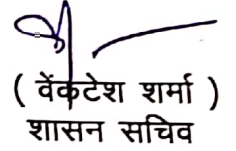 ( वेंकटेश शर्मा )
शासन सचिव